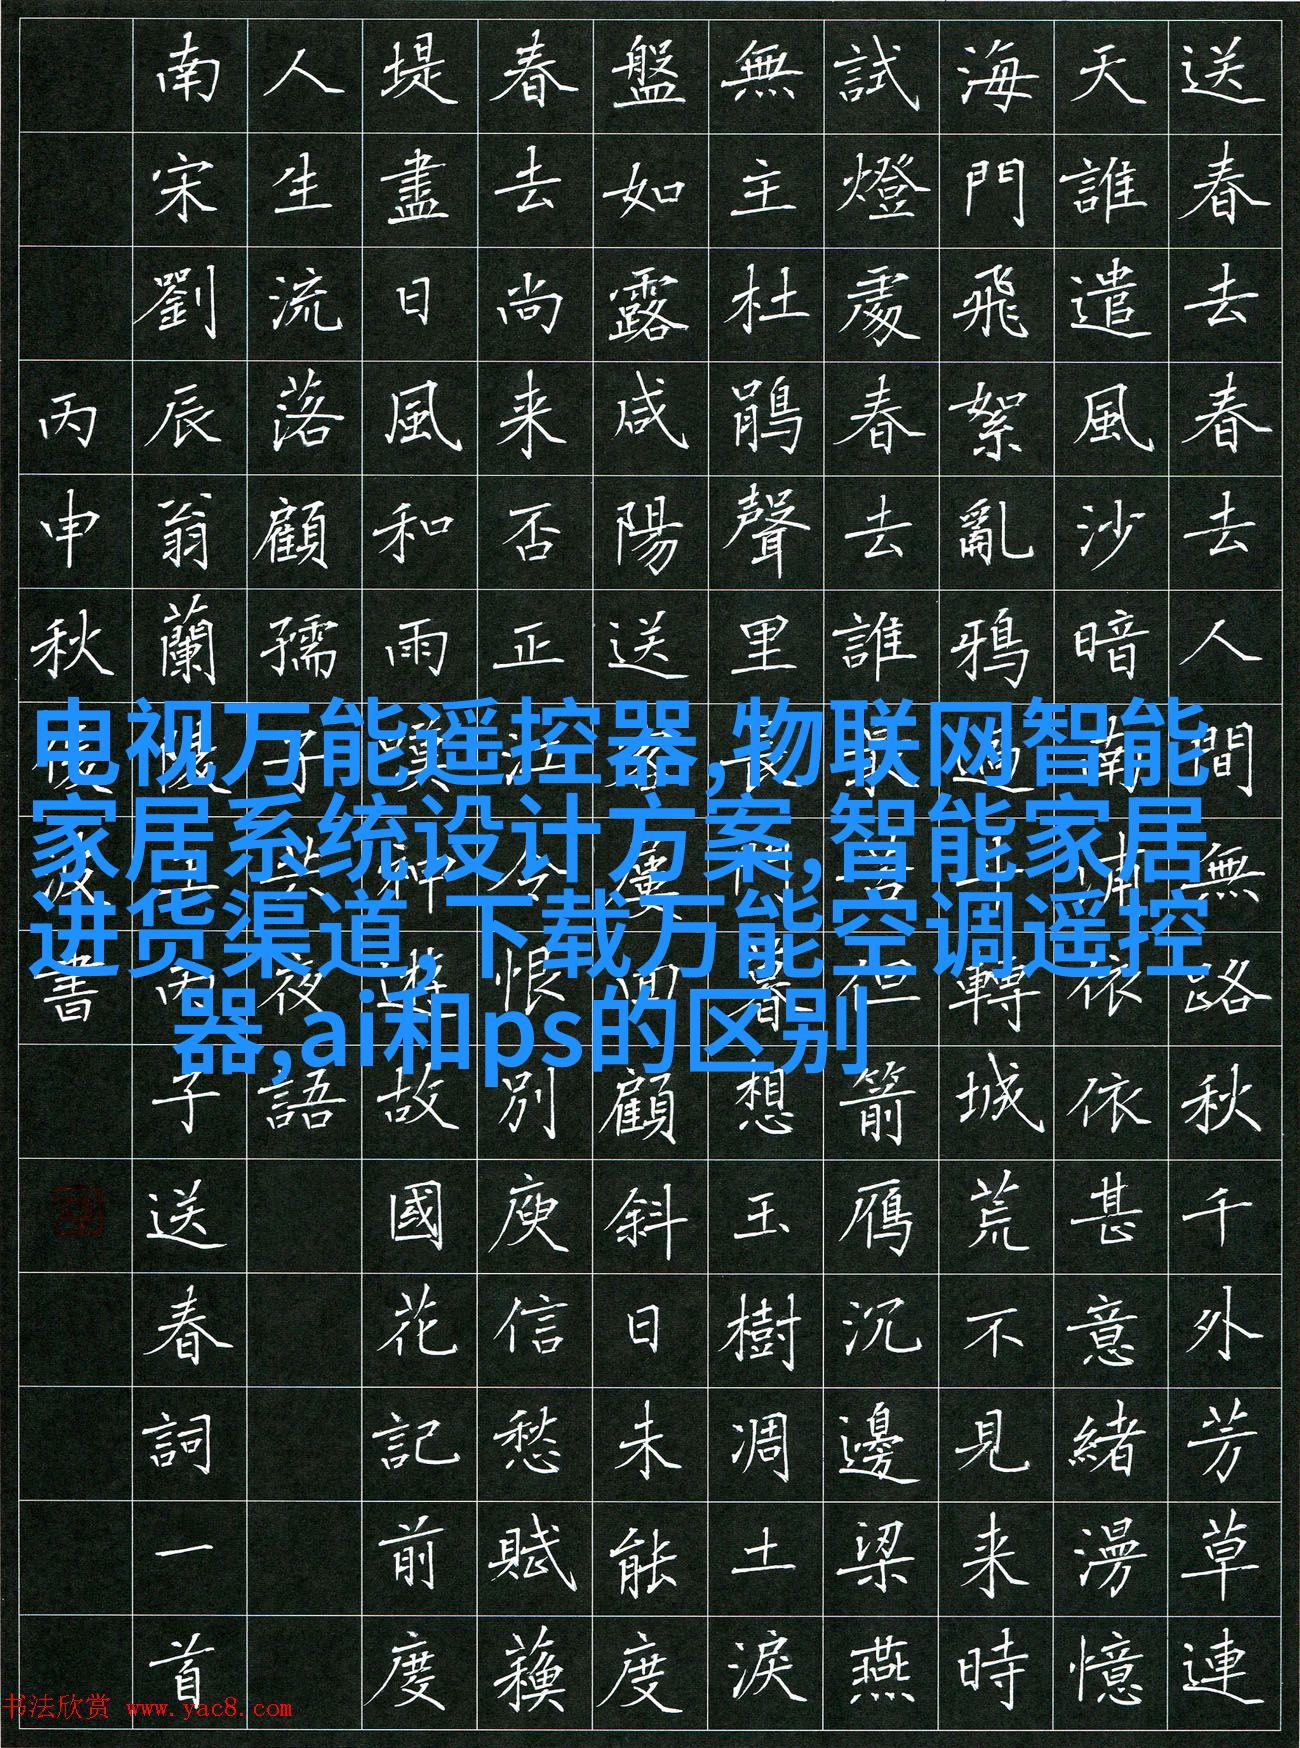 送春去春去人間無路秋千外芳草連
天誰遣風沙暗南浦依依甚意緒漫憶
海門飛絮亂鴉過斗轉城荒不見来時
試燈處春去誰最苦但箭雁沉邊梁燕
無主杜鵑聲里長門暮想玉樹凋土淚
盤如露咸陽送客屢回顧斜日未能度
春去尚来否正江令恨別庾信愁賦蘓
堤盡日風和雨嘆神遊故國花記前度
人生流落顧孺子共夜語
南宋劉辰翁蘭陵王丙子送春詞一首
丙申秋書
电视万能遥控器,物联网智能
家居系统设计方案,智能家居
进货渠道, 下载万能空调遥控
器,ai和ps的区别
书法欣赏 www.yac8.com